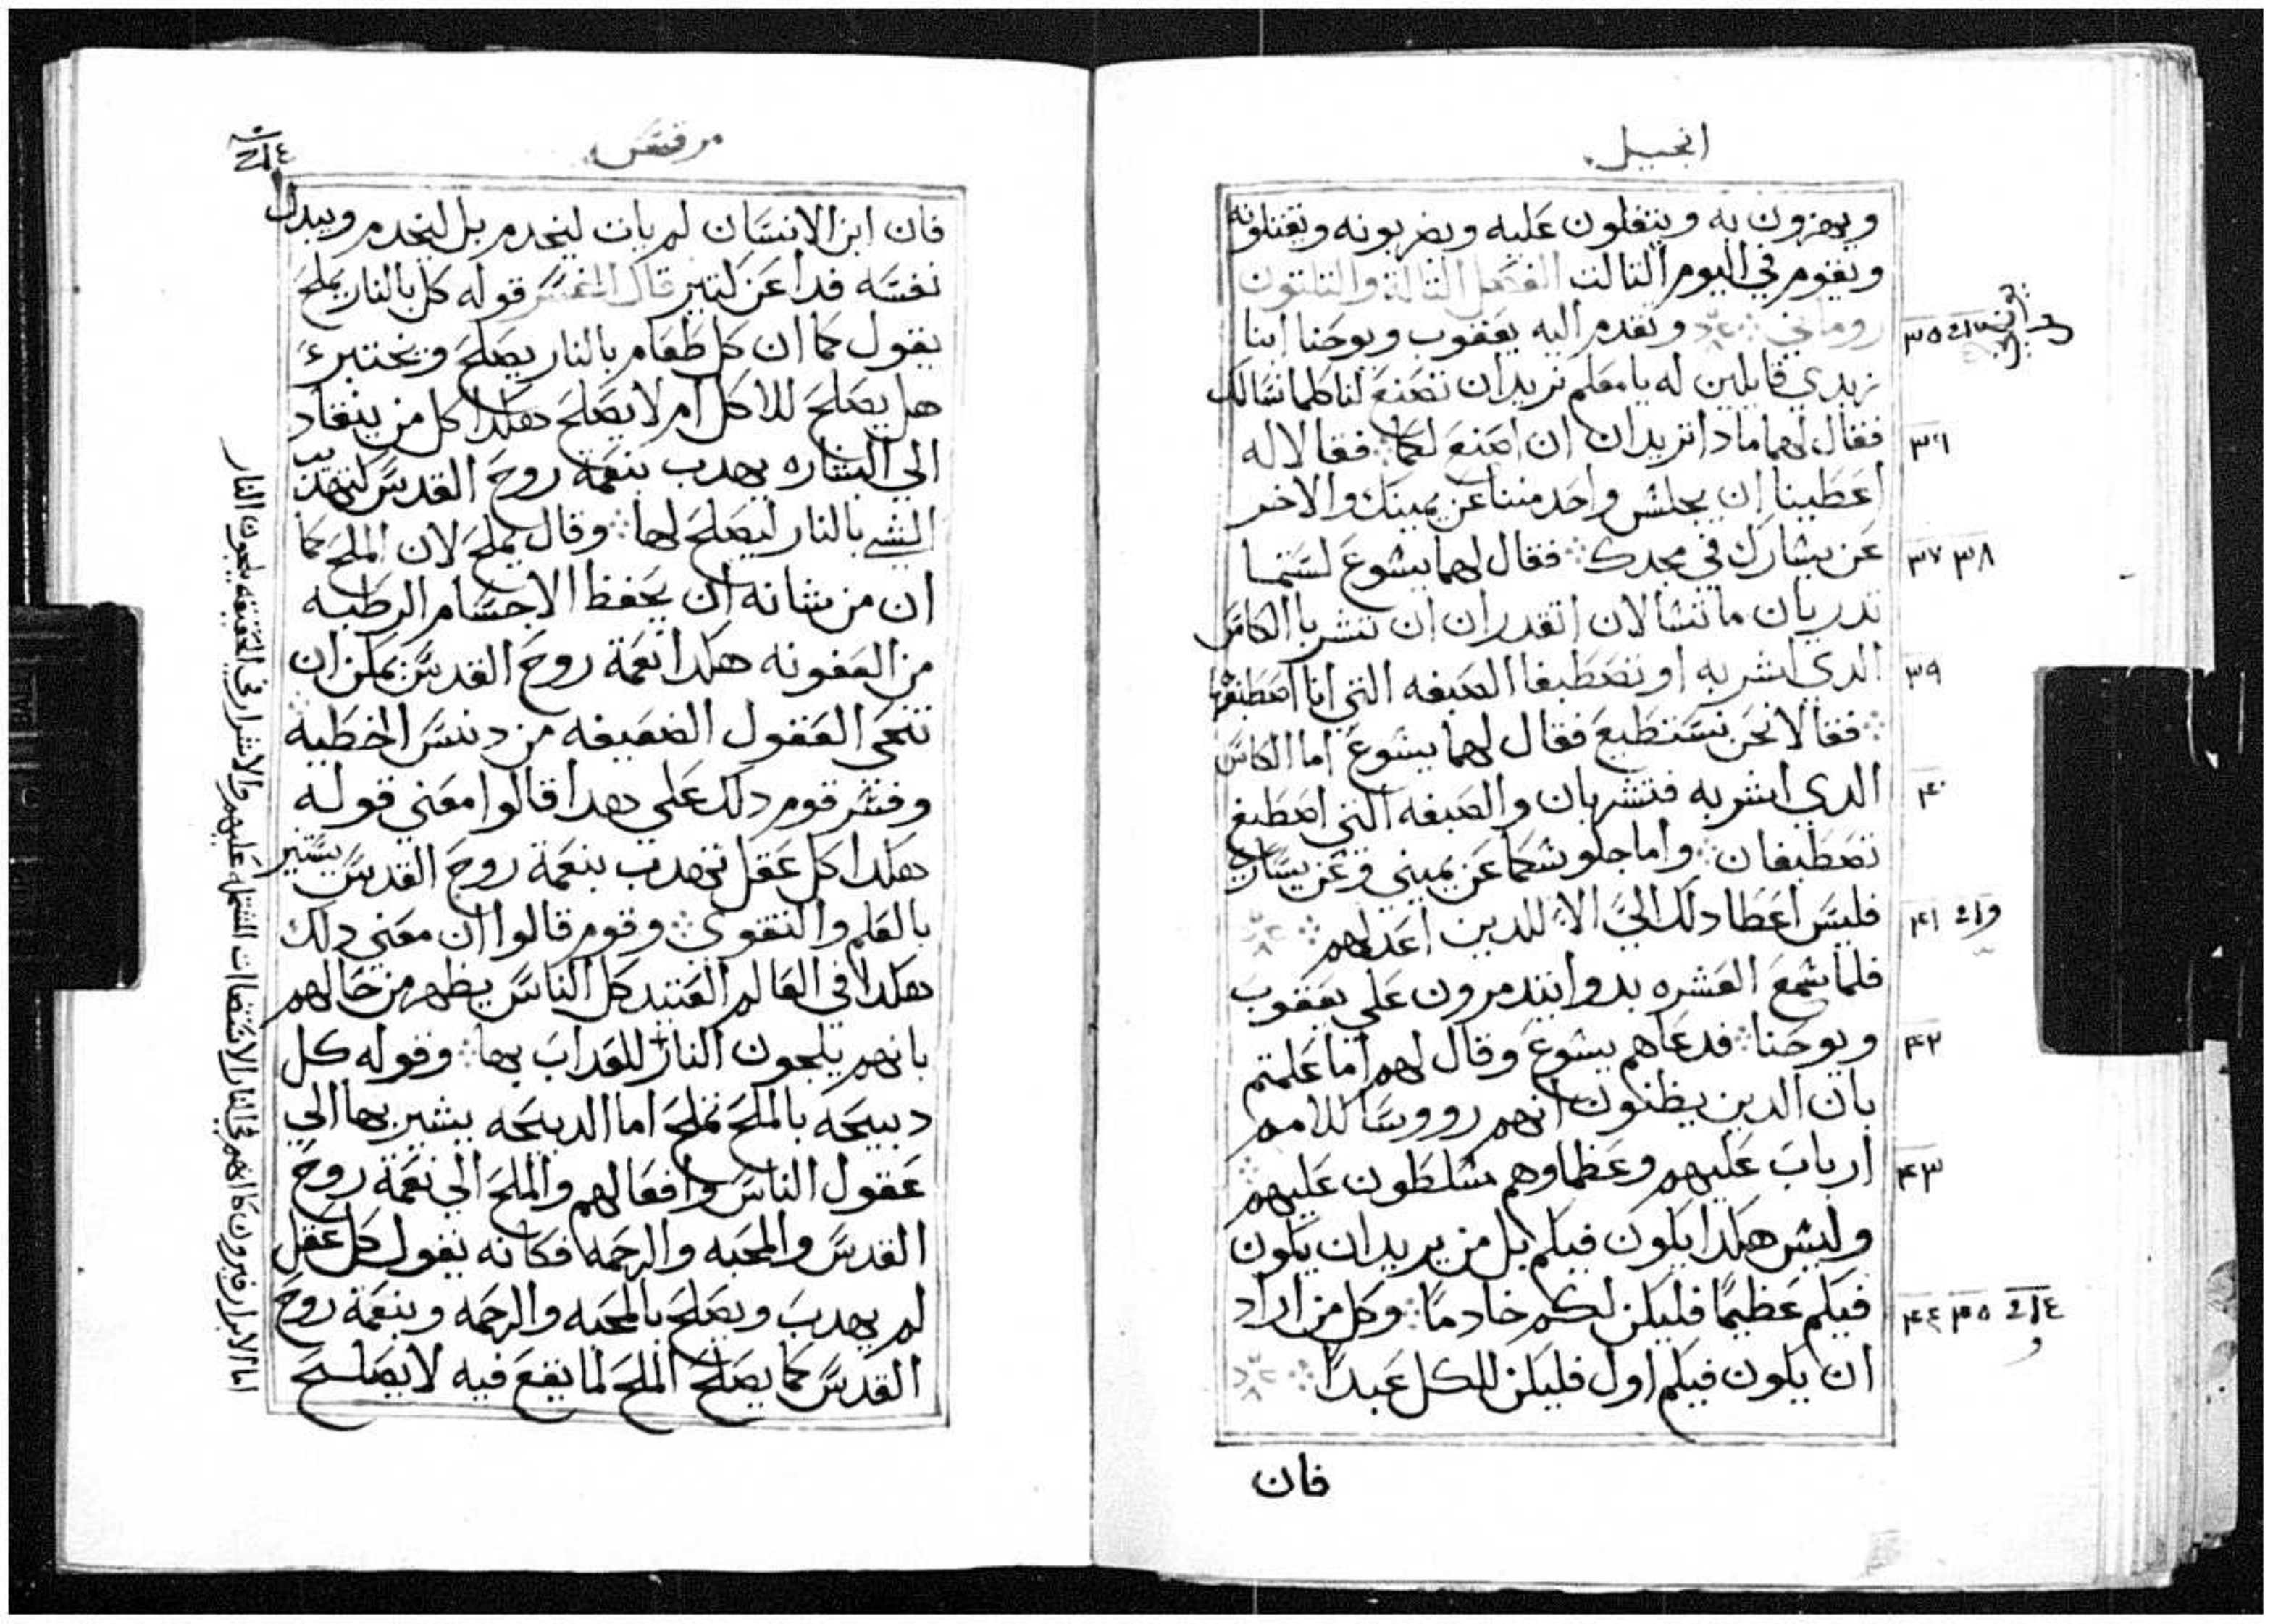 انجيل
ويهزون به ويتفلون عليه ويضربونه ويقتلونه
ويقوم في اليوم الثالت الفصل التالت والتلتون
روماني وتقدم اليه يعقوب ويوحنا ابنا
٣٥
زبدي قايلين له يا معلم نريد ان تصنع لنا كلما نسالك
فقال لهما مادا تريدان ان اصنع لكما فقالا له
٣٦
اعطينا ان يجلس واحد مننا عن يمينك والاخر
عن يسارك في مجدك فقال لهما يسوع لستما
٣٧ ٣٨
تدريان ما تسالان اتقدران ان تشربا الكاس
الدي اشربه او تصطبغا الصبغه التي انا اصطبغها
٣٩
فقالا نحن نستطيع فقال لهما يسوع اما الكاس
الدي اشربه فتشربان والصبغه التي اصطبغ
۴۰
تصطبغان واما جلوسكما عن يميني وعن يساري
فليس اعطا دلك اليّ الا للدين اعد لهم
۴١
فلما سمع العشره بدوا يتدمرون علي يعقوب
ويوحنا فدعاهم يسوع وقال لهم اما علمتم
۴٢
بان الدين يظنون انهم رووسا للامم
ارباب عليهم وعظماوهم مسلطون عليهم
۴٣
وليس هكدا يكون فيكم بل من يريد ان يكون
فيكم عظيمًا فليكن لكم خادمًا وكل من اراد
۴٤ ۴٥
ان يكون فيكم اول فليكن للكل عبدًا
فان
مرقس
فان ابن الانسان لم يات ليخدم بل ليخدم ويبدل
نفسه فدا عن كتير قال المفسر قوله كل بالنار يملح
يقول كما ان كل طعام بالنار يصلح ويختبر
هل يصلح للاكل ام لا يصلح هكدا كل من ينقاد
الي البشاره يهدب بنعمة روح القدس كتهديب
الشي بالنار ليصلح لها وقال يملح لان الملح كما
ان من شانه ان يحفظ الاجسام الرطبه
من العفونه هكدا نعمة روح القدس يمكن ان
تنجي العقول الضعيفه من دنس الخطيه
وفسر قوم دلك علي هدا قالوا معني قوله
هكدا كل عقل تهدب بنعمة روح القدس يستنير
بالعلم والتقوي وقوم قالوا ان معني دلك
هكدا في العالم العتيد كل الناس يظهر من حالهم
بانهم يلجون النار للعداب بها وقوله كل
دبيحه بالملح تملح اما الدبيحه يشير بها الي
عقول الناس وافعالهم والملح الي نعمة روح
القدس والمحبه والرحمه فكانه يقول كل عقل
لم يهدب ويصلح بالمحبه والرحمه وبنعمة روح
القدس كما يصلح الملح لما يقع فيه لا يصلح